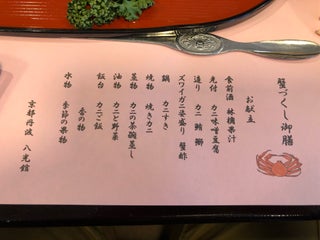 蟹づくし御膳
お献立
食前酒 林檎果汁
先付 カニ味噌豆腐
造り カニ 鮪 鰤
ズワイガニ姿盛り 蟹酢
鍋 カニすき
焼物 焼きカニ
蒸物 カニの茶碗蒸し
油物 カニと野菜
飯台 カニご飯
香の物
水物 季節の果物
京都丹波 八光館